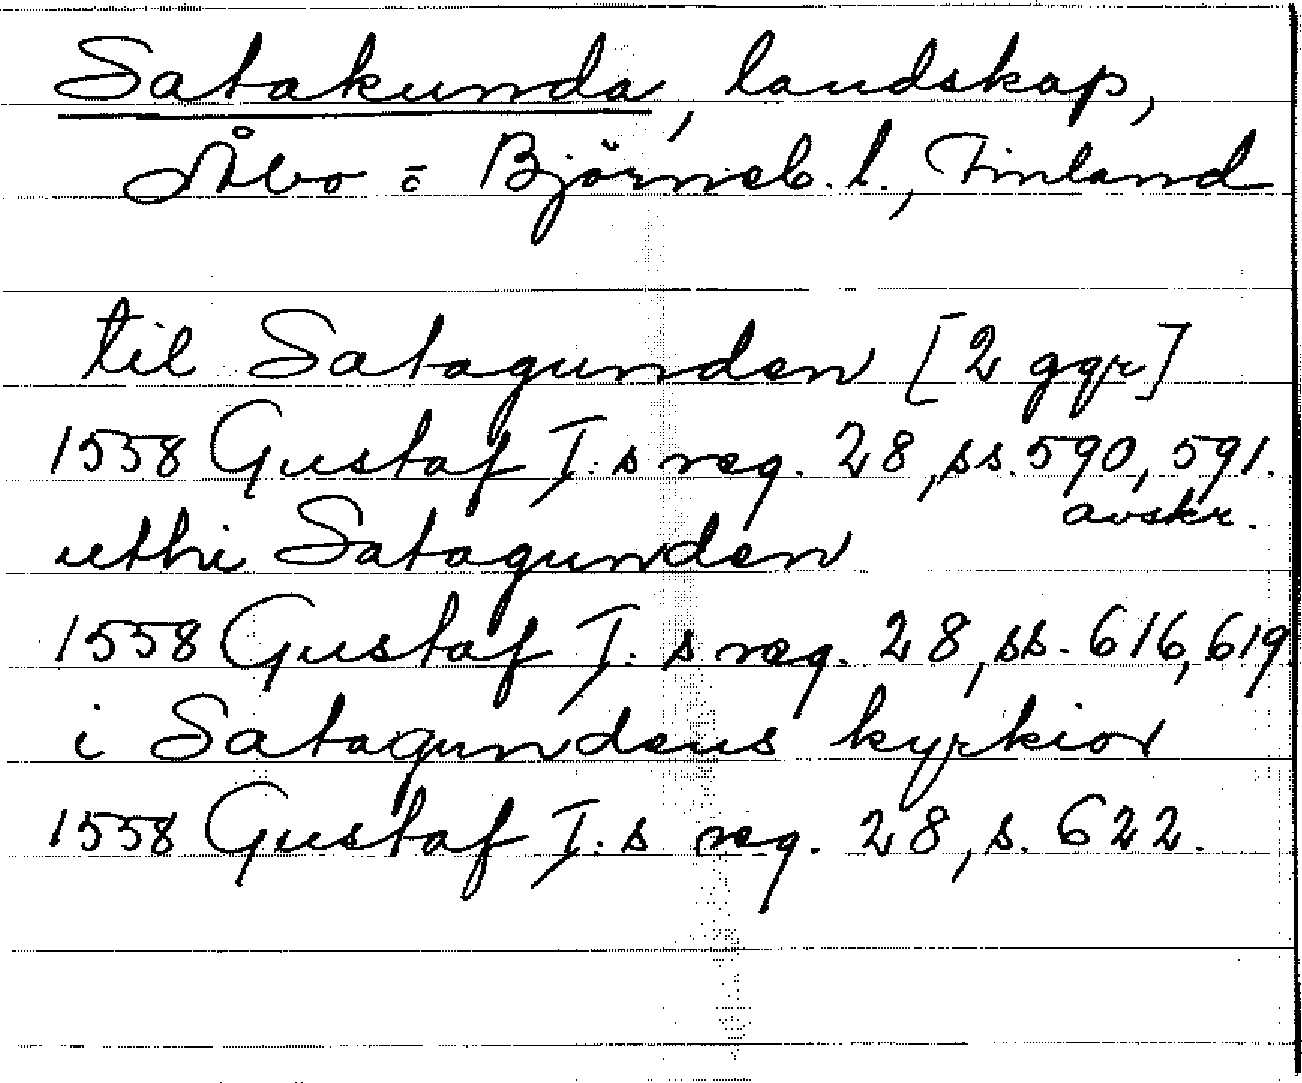 Satakunda, landskap,
Åbo o. Björneb. l., Finland
til Satagunden [2 ggr]
1558 Gustaf I:s reg. 28, ss. 590, 591.
avskr.
uthi Satagunden
1558 Gustaf I:s reg. 28, ss. 616, 619
i Satagundens kyrkior
1558 Gustaf I:s reg. 28, s. 622.